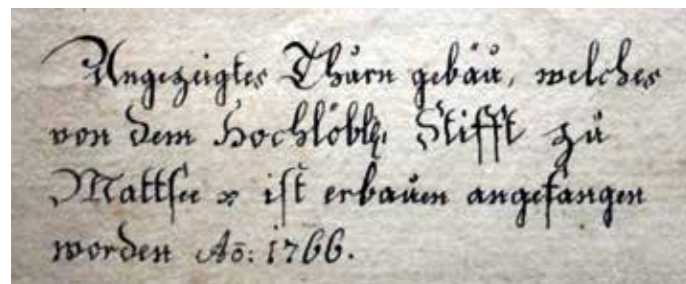 Angezeigtes Thurn gebäu, welches
von dem Hochlöbl: Stifft zu
Mattsee ist erbauen angefangen
worden Aō: 1766.